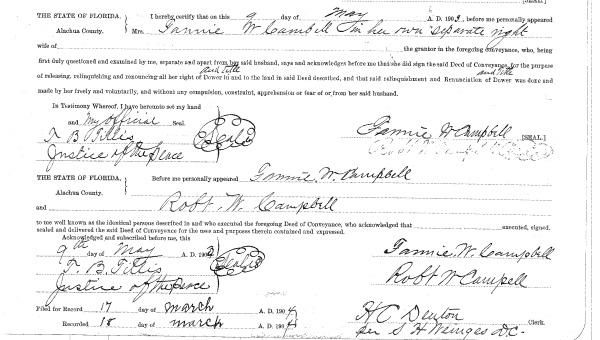 THE STATE OF FLORIDA. } I hereby certify that on this 9 day of May A. D. 1903, before me personally appeared
Alachua County. Mrs. Fannie W Cambell in her own separate right
wife of the grantor in the foregoing conveyance, who, being
first duly questioned and examined by me, separate and apart from her said husband, says and acknowledges before me that she did sign the said Deed of Conveyance, for the purpose
and title and title
of releasing, relinquishing and renouncing all her right of Dower in and to the land in said Deed described, and that said relinquishment and Renunciation of Dower was done and
made by her freely and voluntarily, and without any compulsion, constraint, apprehension or fear of or from her said husband.
In Testimony Whereof, I have hereunto set my hand
and my official Seal.
F. B. Tillis (Seal) Fannie W Campbell [SEAL.]
Justice of the Peace
THE STATE OF FLORIDA, } Before me personally appeared Fannie. W. Campbell
Alachua County.
and Robt. W. Campbell
to me well known as the identical persons described in and who executed the foregoing Deed of Conveyance, who acknowledged that executed, signed.
sealed and delivered the said Deed of Conveyance for the uses and purposes therein contained and expressed.
Acknowledged and subscribed before me, this
9th day of May A. D. 1903 Fannie. W. Campbell
F. B. Tillis (Seal) Robt W Campell
Justice of the Peace
Filed for Record 17 day of March A. D. 1904 H C Denton
Recorded 18 day of march A. D. 1904 per S H Wienges D.C. Clerk.